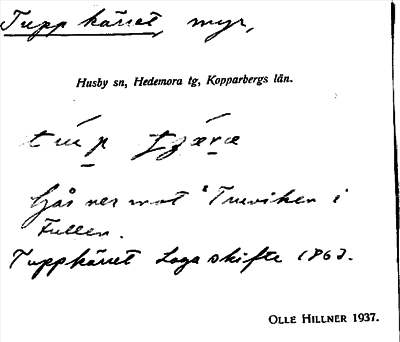 Tuppkärret, myr,
Husby sn, Hedemora tg, Kopparbergs län.
tup tʒæræ
Gås ner mot Tuviken i
Fullen.
Tuppkärret Laga skifte 1863.
OLLE HILLNER 1937.